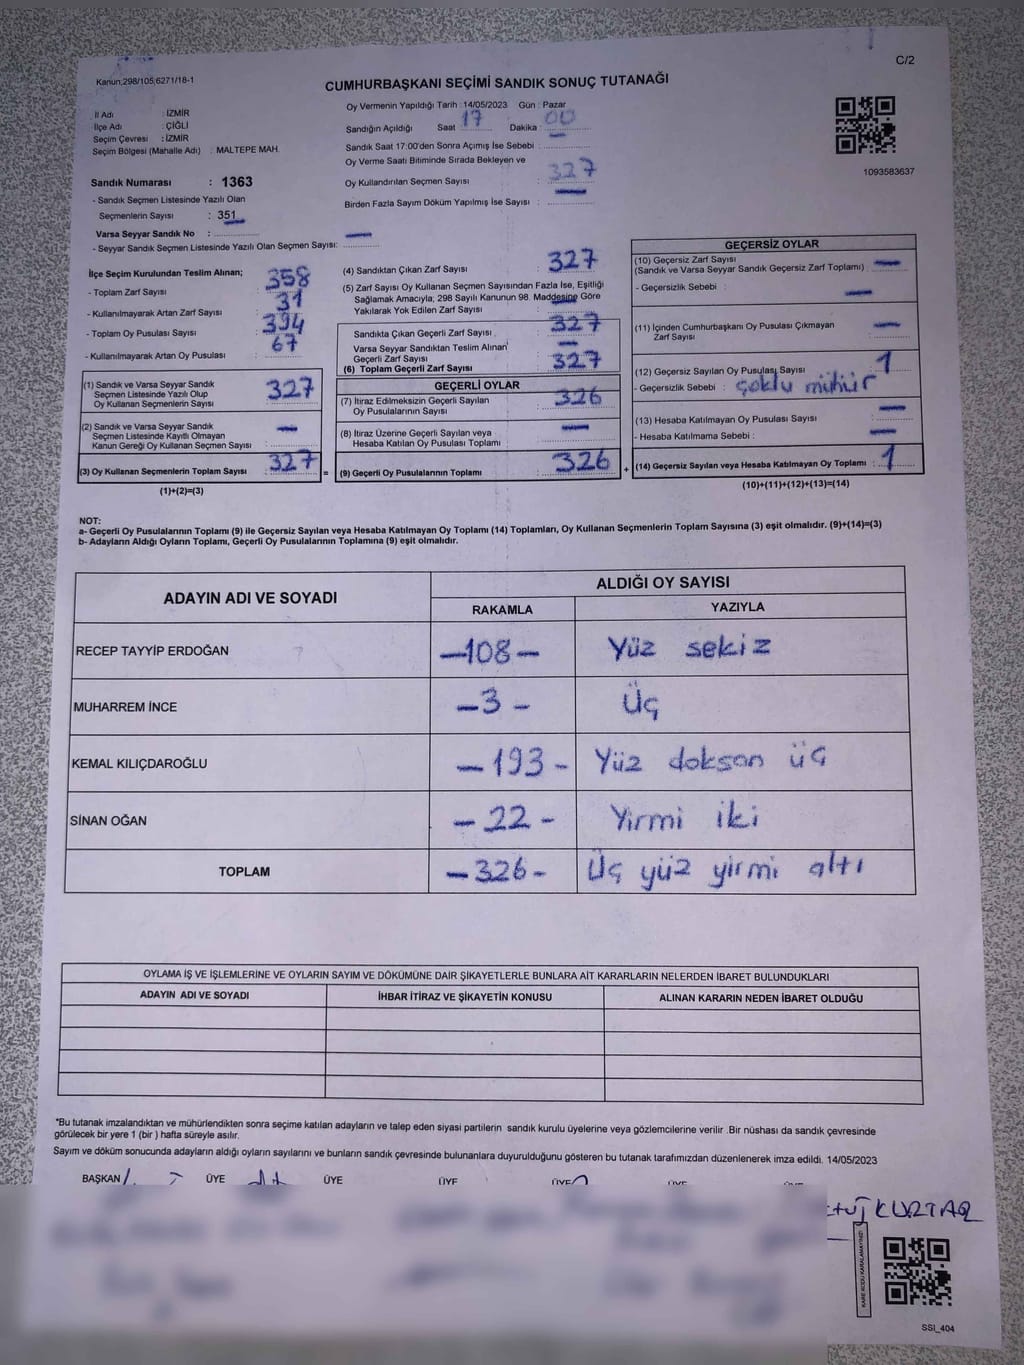 Kanun,298/105,6271/18-1
C/2
CUMHURBAŞKANI SEÇİMİ SANDIK SONUÇ TUTANAĞI
İl Adı : İZMİR
İlçe Adı : ÇİĞLİ
Seçim Çevresi : İZMİR
Seçim Bölgesi (Mahalle Adı) : MALTEPE MAH.
Sandık Numarası : 1363
- Sandık Seçmen Listesinde Yazılı Olan
Seçmenlerin Sayısı : 351
Varsa Seyyar Sandık No : —
- Seyyar Sandık Seçmen Listesinde Yazılı Olan Seçmen Sayısı:
Oy Vermenin Yapıldığı Tarih : 14/05/2023 Gün : Pazar
Sandığın Açıldığı Saat 17 Dakika : 00
Sandık Saat 17:00'den Sonra Açımış İse Sebebi : —
Oy Verme Saati Bitiminde Sırada Bekleyen ve
Oy Kullandırılan Seçmen Sayısı : 327
Birden Fazla Sayım Döküm Yapılmış İse Sayısı : —
1093583637
İlçe Seçim Kurulundan Teslim Alınan;
- Toplam Zarf Sayısı : 358
- Kullanılmayarak Artan Zarf Sayısı : 31
- Toplam Oy Pusulası Sayısı : 394
- Kullanılmayarak Artan Oy Pusulası : 67
(1) Sandık ve Varsa Seyyar Sandık
Seçmen Listesinde Yazılı Olup
Oy Kullanan Seçmenlerin Sayısı : 327
(2) Sandık ve Varsa Seyyar Sandık
Seçmen Listesinde Kayıtlı Olmayan
Kanun Gereği Oy Kullanan Seçmen Sayısı : —
(3) Oy Kullanan Seçmenlerin Toplam Sayısı : 327 =
(1)+(2)=(3)
(4) Sandıktan Çıkan Zarf Sayısı : 327
(5) Zarf Sayısı Oy Kullanan Seçmen Sayısından Fazla İse, Eşitliği
Sağlamak Amacıyla; 298 Sayılı Kanunun 98. Maddesine Göre
Yakılarak Yok Edilen Zarf Sayısı : —
Sandıkta Çıkan Geçerli Zarf Sayısı : 327
Varsa Seyyar Sandıktan Teslim Alınan
Geçerli Zarf Sayısı : —
(6) Toplam Geçerli Zarf Sayısı : 327
GEÇERLİ OYLAR
(7) İtiraz Edilmeksizin Geçerli Sayılan
Oy Pusulasının Sayısı : 326
(8) İtiraz Üzerine Geçerli Sayılan veya
Hesaba Katılan Oy Pusulası Toplamı : —
(9) Geçerli Oy Pusulalarının Toplamı : 326 +
GEÇERSİZ OYLAR
(10) Geçersiz Zarf Sayısı
(Sandık ve Varsa Seyyar Sandık Geçersiz Zarf Toplamı) : —
- Geçersizlik Sebebi : —
(11) İçinden Cumhurbaşkanı Oy Pusulası Çıkmayan
Zarf Sayısı : —
(12) Geçersiz Sayılan Oy Pusulası Sayısı : 1
- Geçersizlik Sebebi : çoklu mühür
(13) Hesaba Katılmayan Oy Pusulası Sayısı : —
- Hesaba Katılmama Sebebi : —
(14) Geçersiz Sayılan veya Hesaba Katılmayan Oy Toplamı : 1
(10)+(11)+(12)+(13)=(14)
NOT:
a- Geçerli Oy Pusulalarının Toplamı (9) ile Geçersiz Sayılan veya Hesaba Katılmayan Oy Toplamı (14) Toplamları, Oy Kullanan Seçmenlerin Toplam Sayısına (3) eşit olmalıdır. (9)+(14)=(3)
b- Adayların Aldığı Oyların Toplamı, Geçerli Oy Pusulalarının Toplamına (9) eşit olmalıdır.
ADAYIN ADI VE SOYADI ALDIĞI OY SAYISI
RAKAMLA YAZIYLA
RECEP TAYYİP ERDOĞAN —108— Yüz sekiz
MUHARREM İNCE —3— Üç
KEMAL KILIÇDAROĞLU —193— Yüz doksan üç
SİNAN OĞAN —22— Yirmi iki
TOPLAM —326— Üç yüz yirmi altı
OYLAMA İŞ VE İŞLEMLERİNE VE OYLARIN SAYIM VE DÖKÜMÜNE DAİR ŞİKAYETLERLE BUNLARA AİT KARARLARIN NELERDEN İBARET BULUNDUKLARI
ADAYIN ADI VE SOYADI İHBAR İTİRAZ VE ŞİKAYETİN KONUSU ALINAN KARARIN NEDEN İBARET OLDUĞU
*Bu tutanak imzalandıktan ve mühürlendikten sonra seçime katılan adayların ve talep eden siyasi partilerin sandık kurulu üyelerine veya gözlemcilerine verilir .Bir nüshası da sandık çevresinde
görülecek bir yere 1 (bir ) hafta süreyle asılır.
Sayım ve döküm sonucunda adayların aldığı oyların sayılarını ve bunların sandık çevresinde bulunanlara duyurulduğunu gösteren bu tutanak tarafımızdan düzenlenerek imza edildi. 14/05/2023
BAŞKAN ÜYE ÜYE ÜYE ÜYE
KURTAR
KARE KODU KARALAMAYINIZ!
SSI_404